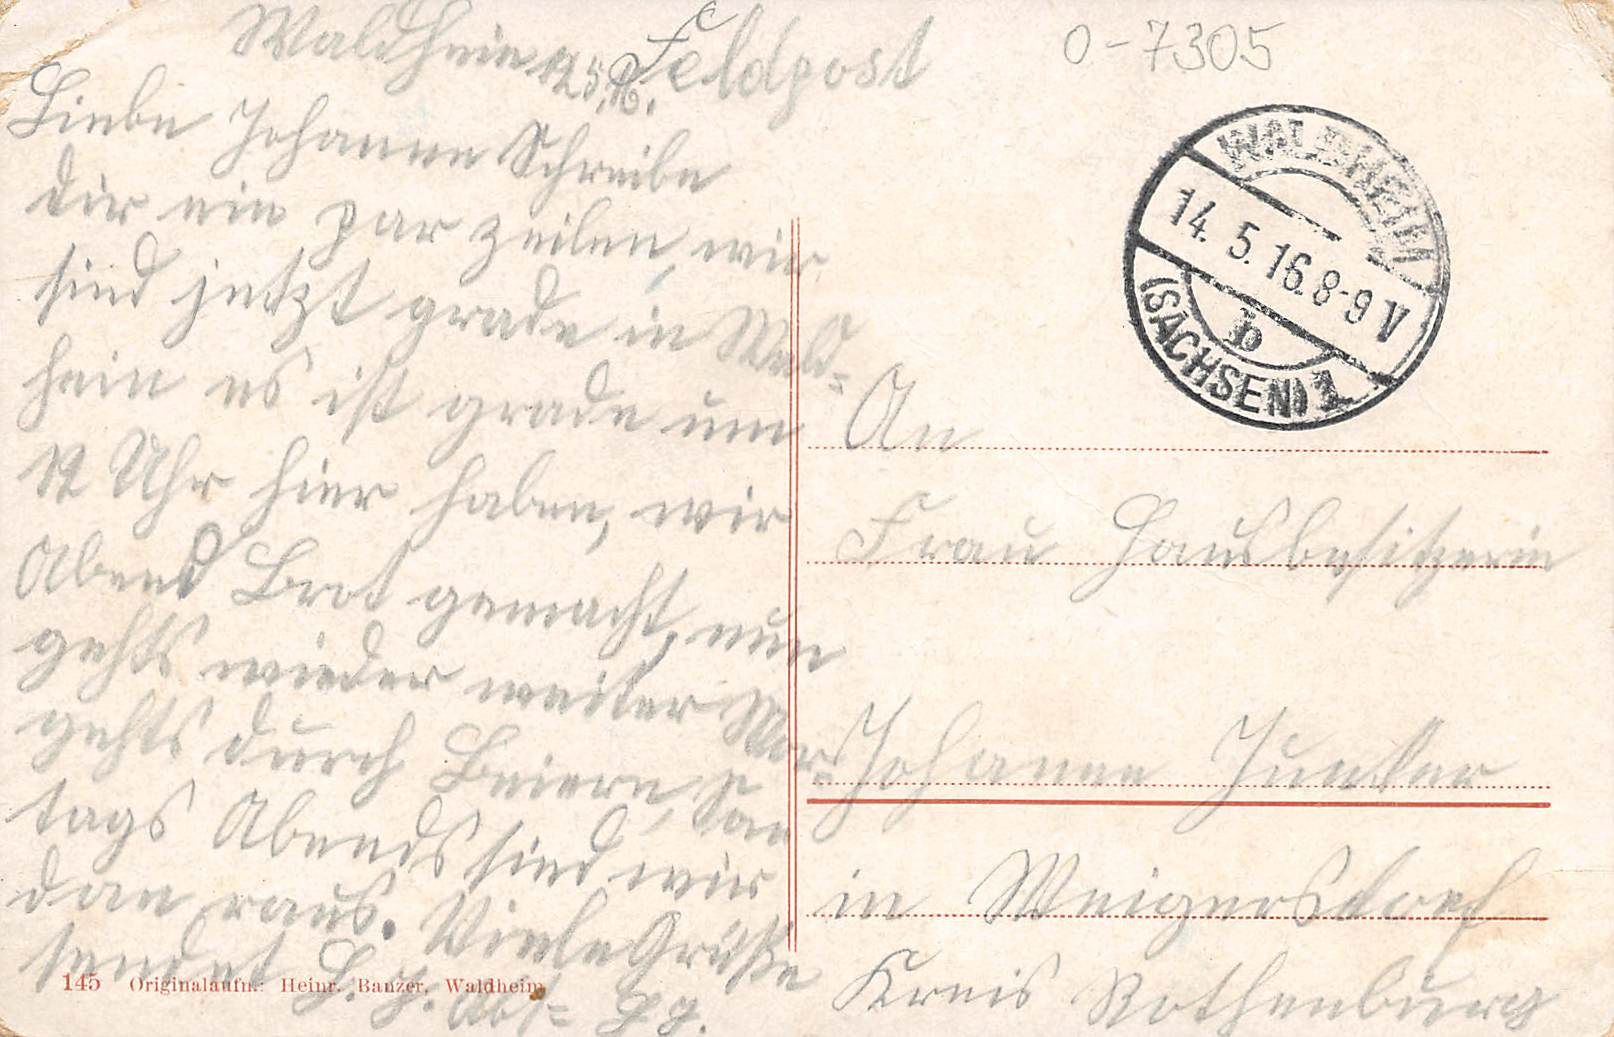 Waldheim 12.5.16.
Feldpost
0-7305
Liebe Johanne Schreibe
dir ein par zeilen, wir
sind jetzt grade in Wald-
heim es ist grade um
12 Uhr hier haben, wir
Abend Brot gemacht, nun
gehts wieder weiter
gehts durch Beiern,
tags Abends sind wir
dan raus. Viele Grüße
sendet
WALDHEIM
14. 5. 16. 8-9 V
b
(SACHSEN) 1
An
Frau Hausbesitzerin
Johanne Junker
in Weigersdorf
Kreis Rothenburg
145 Originalaufn.: Heinr. Banzer, Waldheim